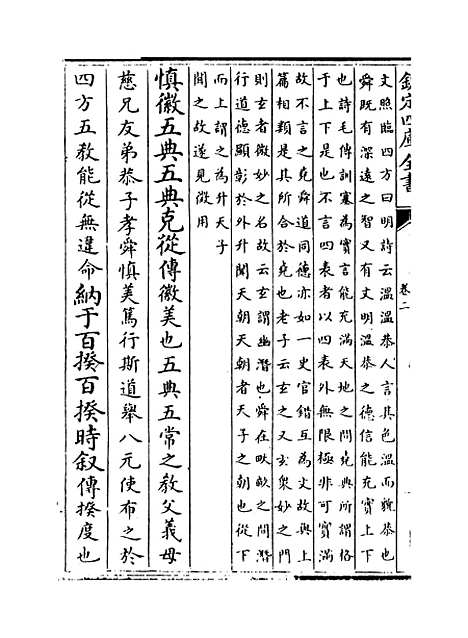 欽定四庫全書
卷二
文照臨四方曰明詩云溫溫恭人言其色溫而貌恭也
舜既有深遠之智又有文明溫恭之德信能充實上下
也詩毛傳訓塞為實言能充滿天地之間堯典所謂格
于上下是也不言四表者以四表外無限極非可實滿
故不言之堯舜道同德亦如一史官錯互為文故與上
篇相類是其所合於堯也老子云玄之又玄衆妙之門
則玄者微妙之名故云玄謂幽潛也舜在畎畝之間潛
行道德顯彰於外升聞天朝天朝者天子之朝也從下
而上謂之為升天子
聞之故遂見徵用
慎徽五典五典克從傳徽美也五典五常之教父義母
慈兄友弟恭子孝舜慎美篤行斯道舉八元使布之於
四方五教能從無違命納于百揆百揆時叙傳揆度也